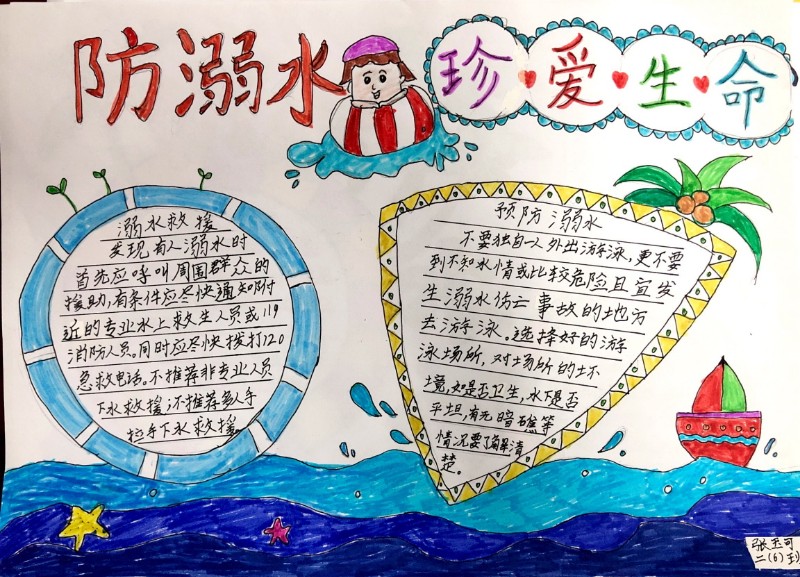 防溺水
珍爱生命
溺水救援
发现有人溺水时
首先应呼叫周围群众的
援助,有条件应尽快通知附
近的专业水上救生人员或119
消防人员。同时应尽快拨打120
急救电话。不推荐非专业人员
下水救援;不推荐多人手
拉手下水救援
预防溺水
不要独自一人外出游泳,更不要
到不知水情或比较危险且宜发
生溺水伤亡事故的地方
去游泳。选择好的游
泳场所,对场所的环
境,如是否卫生,水下是否
平坦,有无暗礁等
情况要了解清
楚。
张玉可
二(6)